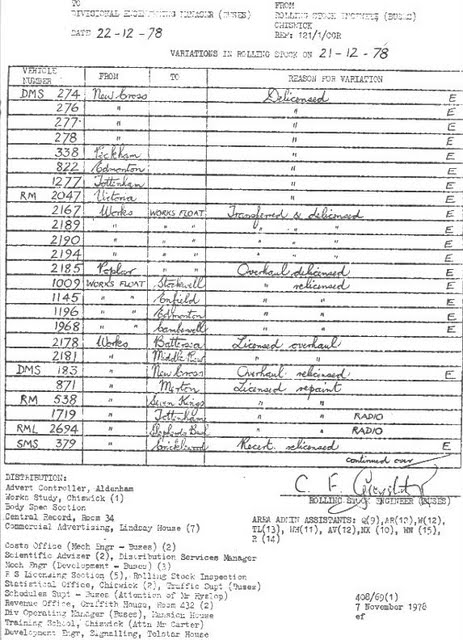 TO FROM
DIVISIONAL ENGINEERING MANAGER (BUSES) ROLLING STOCK ENGINEER (BUSES)
CHISWICK
DATE 22-12-78 REF: 121/1/COR
VARIATIONS IN ROLLING STOCK ON 21-12-78
VEHICLE NUMBER FROM TO REASON FOR VARIATION
DMS 274 New Cross Delicensed E
276 " " E
277 " " E
278 " " E
338 Peckham " E
822 Edmonton " E
1277 Tottenham " E
RM 2047 Victoria " E
2167 Works WORKS FLOAT Transferred & delicensed E
2189 " " " " " E
2190 " " " " " E
2194 " " " " " E
2185 Poplar " " Overhaul delicensed E
1009 WORKS FLOAT Stockwell " relicensed E
1145 " " Enfield " " E
1196 " " Edmonton " " E
1968 " " Camberwell " " E
2178 Works Battersea Licensed overhaul
2181 " Middle Row " "
DMS 183 " New Cross Overhaul relicensed E
871 " Merton Licensed repaint
RM 538 " Seven Kings " "
1719 " Tottenham " " RADIO
RML 2694 " Shepherds Bush " " RADIO
SMS 379 " Cricklewood Recert. relicensed E
continued over
DISTRIBUTION:
Advert Controller, Aldenham
Works Study, Chiswick (1)
Body Spec Section
Central Record, Room 34
Commercial Advertising, Lindsay House (7)
C. F.
ROLLING STOCK ENGINEER (BUSES)
AREA ADMIN ASSISTANTS: Q(9), AB(10), W(12),
TL(13), HH(11), AV(12), NX (10), HW (15),
R (14)
Costs Office (Mech Engr - Buses) (2)
Scientific Adviser (2), Distribution Services Manager
Mech Engr (Development - Buses) (3)
R S Licensing Section (5), Rolling Stock Inspection
Statistical Office, Chiswick (2), Traffic Supt (Buses)
Schedules Supt - Buses (Attention of Mr Hyslop)
Revenue Office, Griffith House, Room 432 (2)
Div Operating Manager (Buses), Mansion House
Training School, Chiswick (Attn Mr Carter)
Development Engr, Signalling, Telstar House
408/69(1)
7 November 1978
ef